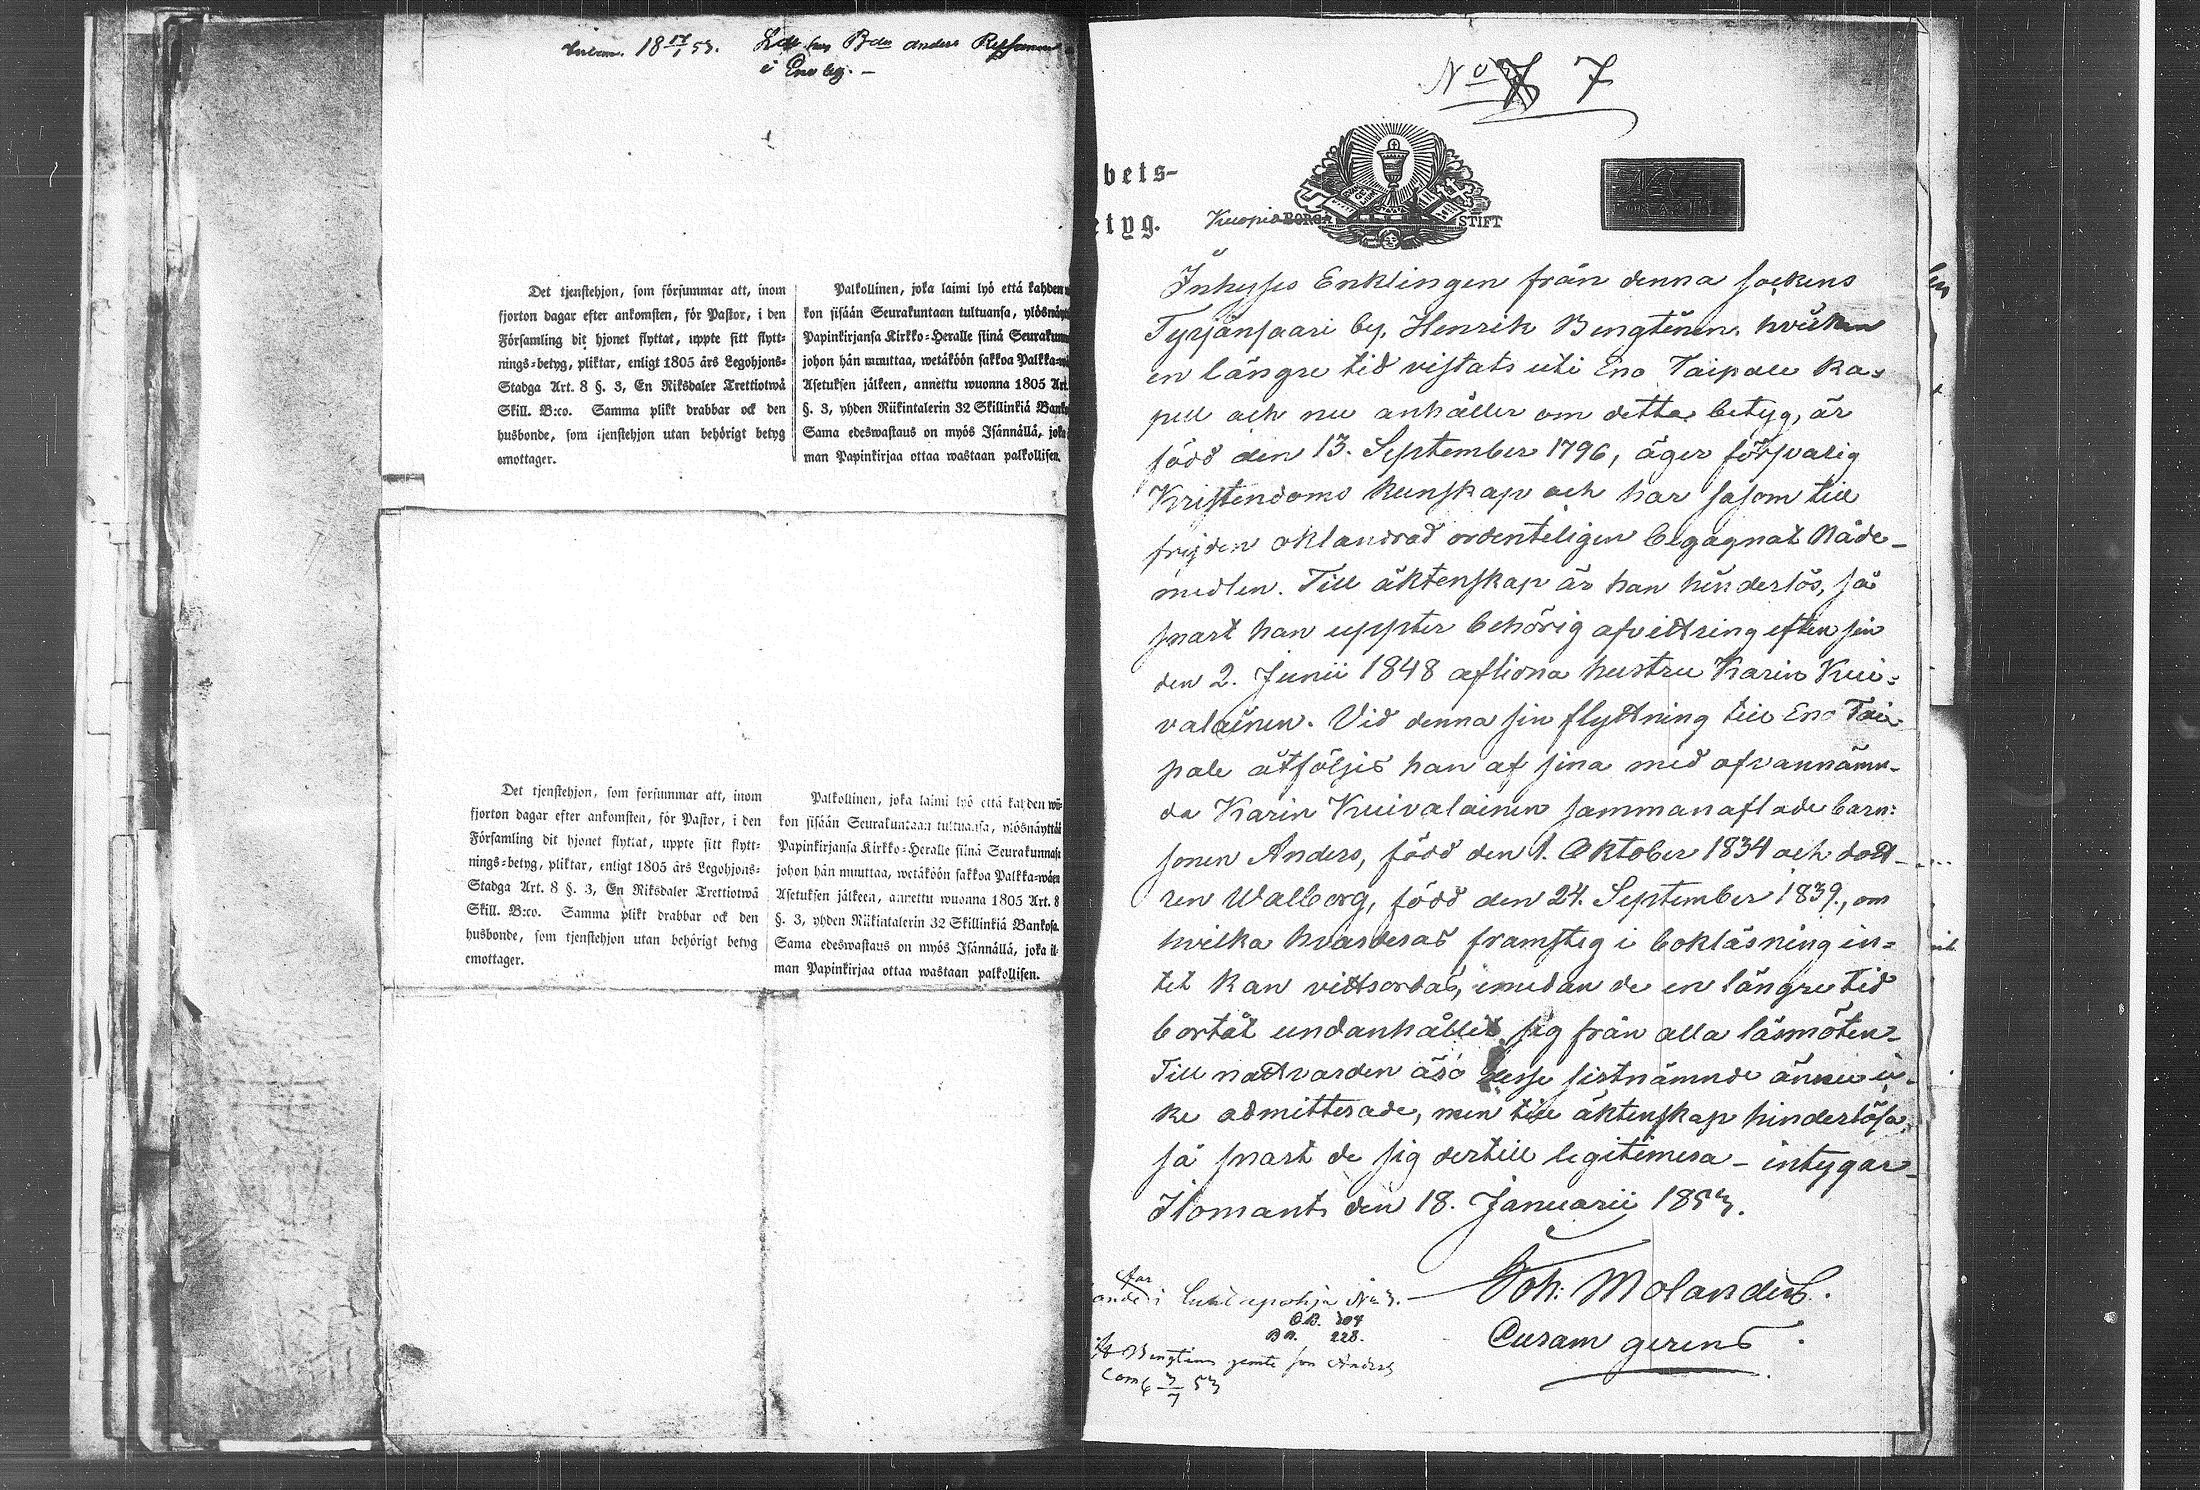 18 17/1 53. hos Bdn Anders
i Eno by. –
Det tjenstehjon, som försummar att, inom
fjorton dagar efter ankomsten, för Pastor, i den
Församling dit hjonet flyttat, uppte sitt flytt=
nings=betyg, pliktar, enligt 1805 års Legohjons=
Stadga Art. 8 §. 3, En Riksdaler Trettiotwå
Skill. B:co. Samma plikt drabbar ock den
husbonde, som tjenstehjon utan behörigt betyg
emottager.
Palkollinen, joka laimi lyö että kahden
kon sisään Seurakuntaan tultuansa, ylösnäyt
Papinkirjansa Kirkko=Herralle siinä Seurakunn
johon hän muuttaa, wetäköön sakkoa Palkka=w
Asetuksen jälkeen, annettu wuonna 1805 Art.
§. 3, yhden Riikintalerin 32 Skillinkiä Banko
Sama edeswastaus on myös Isännällä, joka
man Papinkirjaa ottaa wastaan palkollisen.
Det tjenstehjon, som forsummar att, inom
fjorton dagar efter ankomsten, för Pastor, i den
Församling dit hjonet flyttat, uppte sitt flytt=
nings=betyg, pliktar, enligt 1805 års Legohjons=
Stadga Art. 8 §. 3, En Riksdaler Trettiotwå
Skill. B:co. Samma plikt drabbar ock den
husbonde, som tjenstehjon utan behörigt betyg
emottager.
Palkollinen, joka laimi lyö että kahden wii=
kon sisään Seurakuntaan tultuansa, ylösnäyttäi
Papinkirjansa Kirkko=Heralle siinä Seurakunnasa
johon hän muuttaa, wetäköön sakkoa Palkka=wäen
Asetuksen jälkeen, annettu wuonna 1805 Art. 8
§. 3, yhden Riikintalerin 32 Skillinkiä Bankosa.
Sama edeswastaus on myös Isännällä, joka il=
man Papinkirjaa ottaa wastaan palkollisen.
No 7
bets-
etyg.
Kuopio BORGÅ STIFT
Inhyses Enklingen från denna sockens
Tyrjänsaari by, Henrik Bengtinen, hvilken
en längre tid vistats uti Eno Taipale Ka=
pell och nu anhåller om detta betyg, är
född den 13. September 1796, äger försvarlig
Kristendoms kunskap och har såsom till
frejden oklandrad ordenteligen begagnat Nåde-
medlen. Till äktenskap är han hinderlös, så
snart han uppter behörig afvittring efter sin
den 2. Junii 1848 aflidna hustru Karin Kui=
valainen. Vid denna sin flyttning till Eno Tai
pale åtföljes han af sina med ofvannämn-
da Karin Kuivalainen sammanaflade barn:
sonen Anders, född den 1. Oktober 1834 och dott-
ren Walborg, född den 24. September 1839, om
hvilka hvarderas framsteg i bokläsning in=
tet kan vittsordas, emedan de en längre tid
bortåt undanhållit sig från alla läsmöten.
Till nattvarden äro desse sistnämnde ännu ic-
ke admitterade, men till äktenskap hinderlösa,
så snart de sig dertill legitimera – intygar
Ilomants den 18. Januarii 1853.
Joh: Molander.
Curam gerens.
No 3.
C.B. 204
B.B. 228.
Bengtinen jemte son Anders
Com 3/7 53